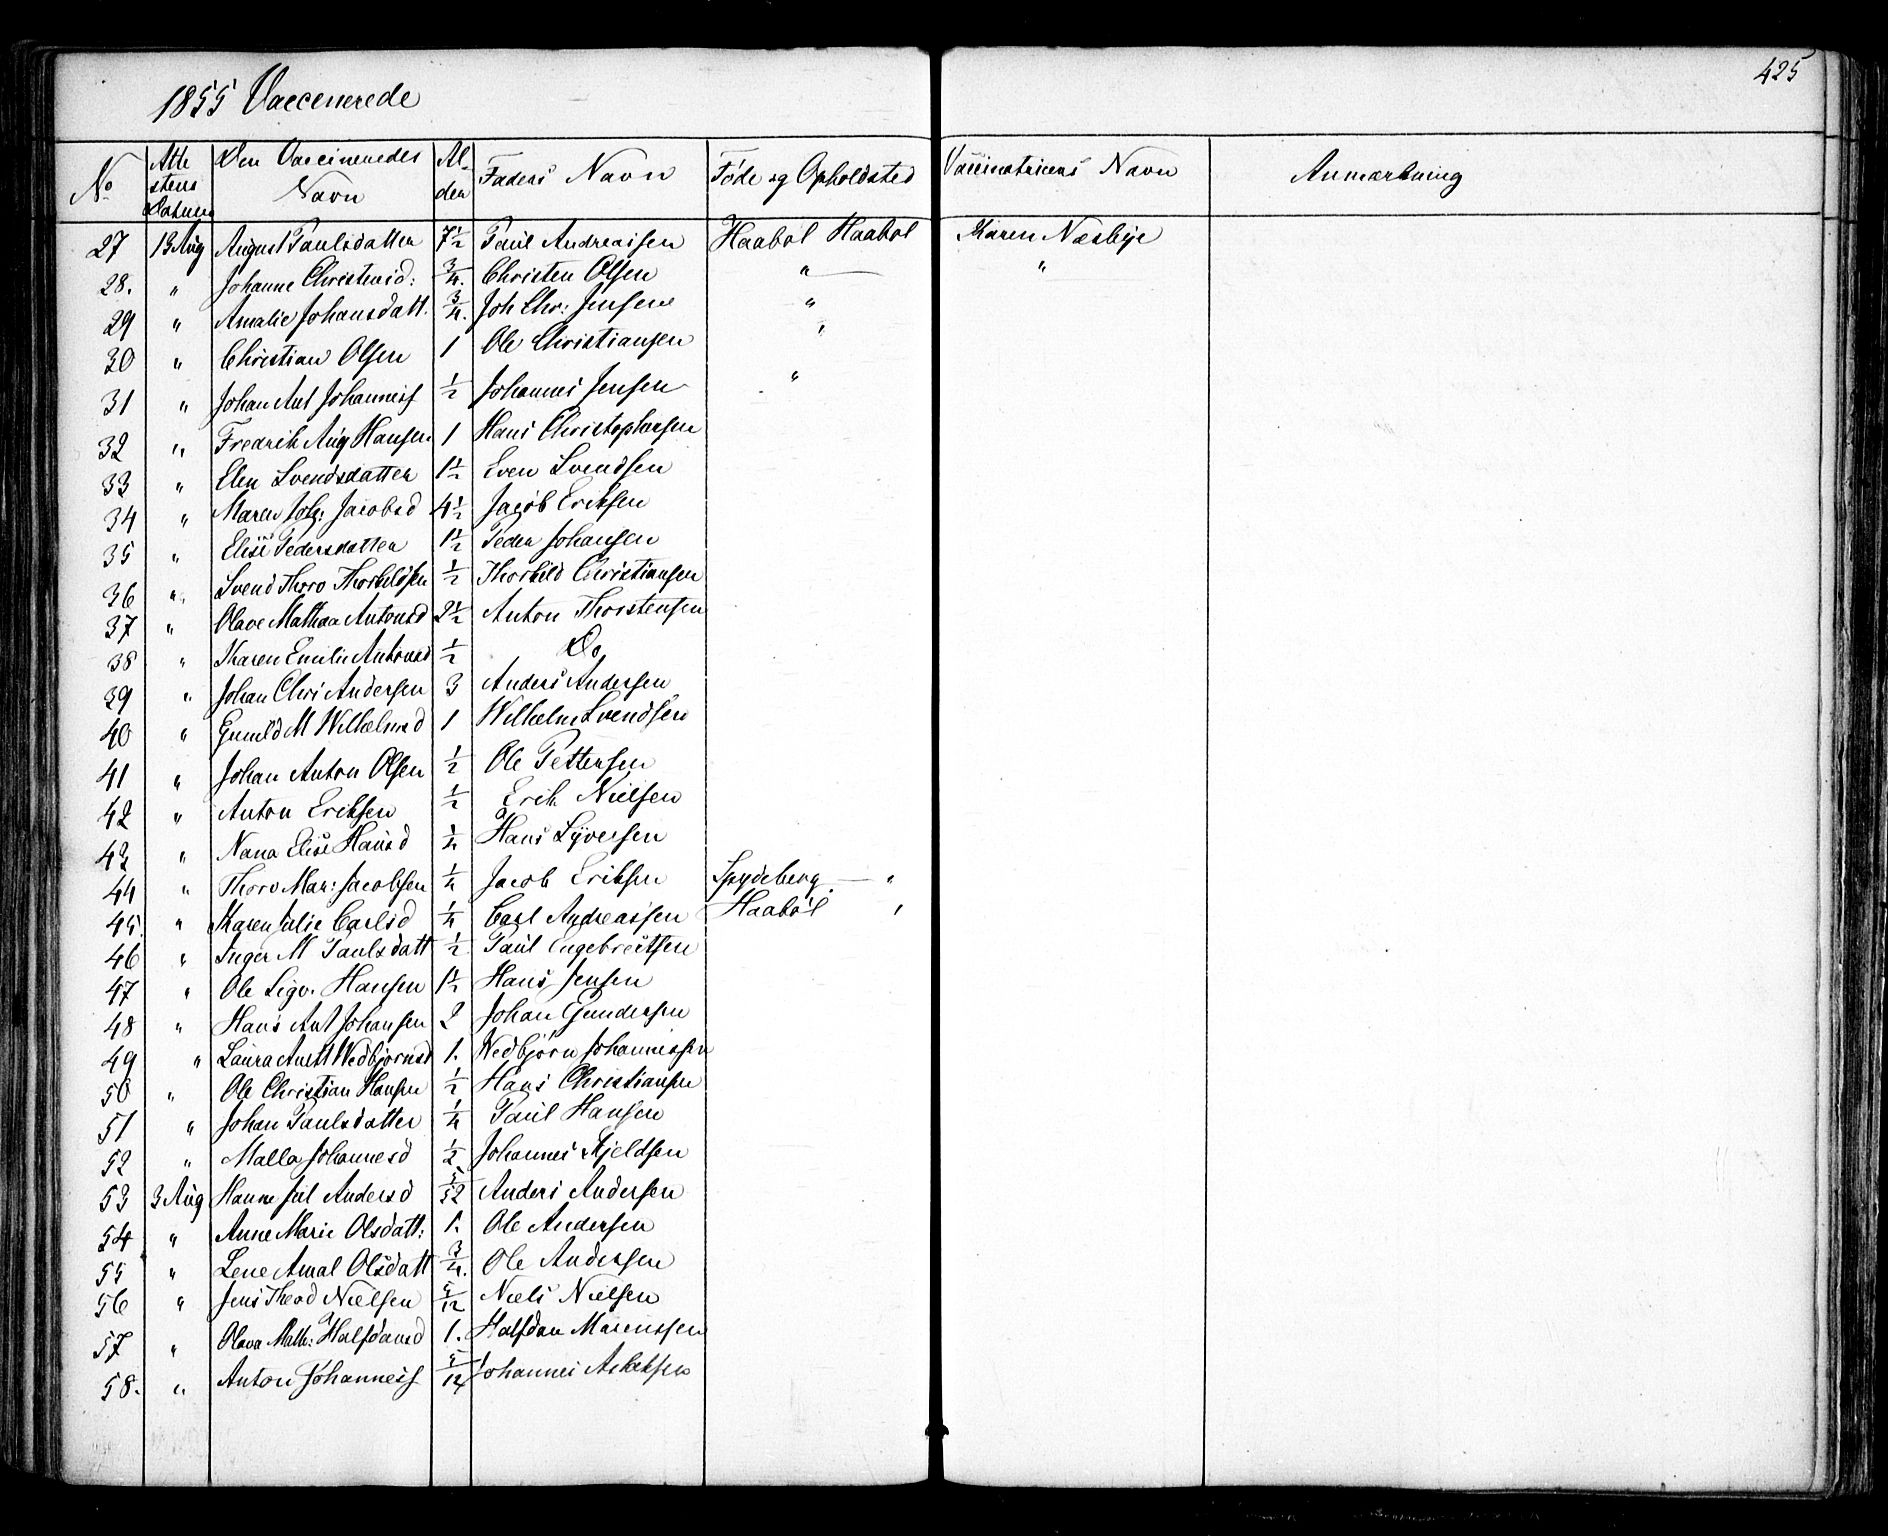 425
1855 Vaccenerede
No | Attestens Datum | Den Vaccineredes Navn | Alder | Faders Navn | Føde og Opholdsted | Vaccinatricens Navn | Anmærkning
27 13 Aug August Paulsdatter 7½ Paul Andreassen Haabøl Haabøl Karen Næsbye
28. " Johanne Christensd: ¾. Christen Olsen " — "
29 " Amalie Johansdatt. ¾. Joh Chr: Jensen "
30 " Christian Olsen 1 Ole Christiansen "
31 " Johan Ant Johannesf ½ Johannes Jensen "
32 " Fredrik Aug Hansen 1 Hans Christophersen
33 " Elen Svendsdatter 1½ Even Svendsen
34 " Maren Joh: Jacobsd 4½ Jacob Eriksen
35 " Elise Pedersdatter 1½ Peder Johansen
36 " Svend Thoro Thorkildsen ½ Thorkild Christiansen
37 " Olave Mathea Antonsd 2½ Anton Thorstensen
38 " Karen Emilie Antonsd ½ Do
39 " Johan Chri Andersen 3 Anders Andersen
40 " Gunild M Wilhelmsd 1 Wilhelm Svendsen
41 " Johan Anton Olsen ½ Ole Pettersen
42 " Anton Eriksen ½ Erik Nielsen
43 " Nana Elise Hansd ¼ Hans Syversen
44 " Thoro Mar: Jacobsen ¼ Jacob Eriksen Spydeberg. — "
45. " Karen Julie Carlsd ¼ Carl Andreassen Haabøl "
46 " Inger M Paulsdatt ½ Paul Engebretsen
47 " Ole Sigv. Hansen 1½ Hans Jensen
48 " Hans Ant Johansen 2 Johan Gundersen
49 " Laura Anett Wedbjørnsd 1. Wedbjørn Johannessen
50 " Ole Christian Hansen ½ Hans Christiansen
51 " Johan Paulsdatter ¼ Paul Hansen
52 " Malla Johannesd ½ Johannes Kjeldsen
53 3 Aug Hanne Jul Andersd 5/52 Anders Andersen
54 " Anne Marie Olsdatt: 1. Ole Andersen
55 " Lene Amal Olsdatt ¾. Ole Andersen
56 " Jens Theod Nielsen 5/12 Niels Nielsen
57 " Olava Math: Halfdansd 1. Halfdan
58. " Anton Johannesf 5/12 Johannes Aslaksen